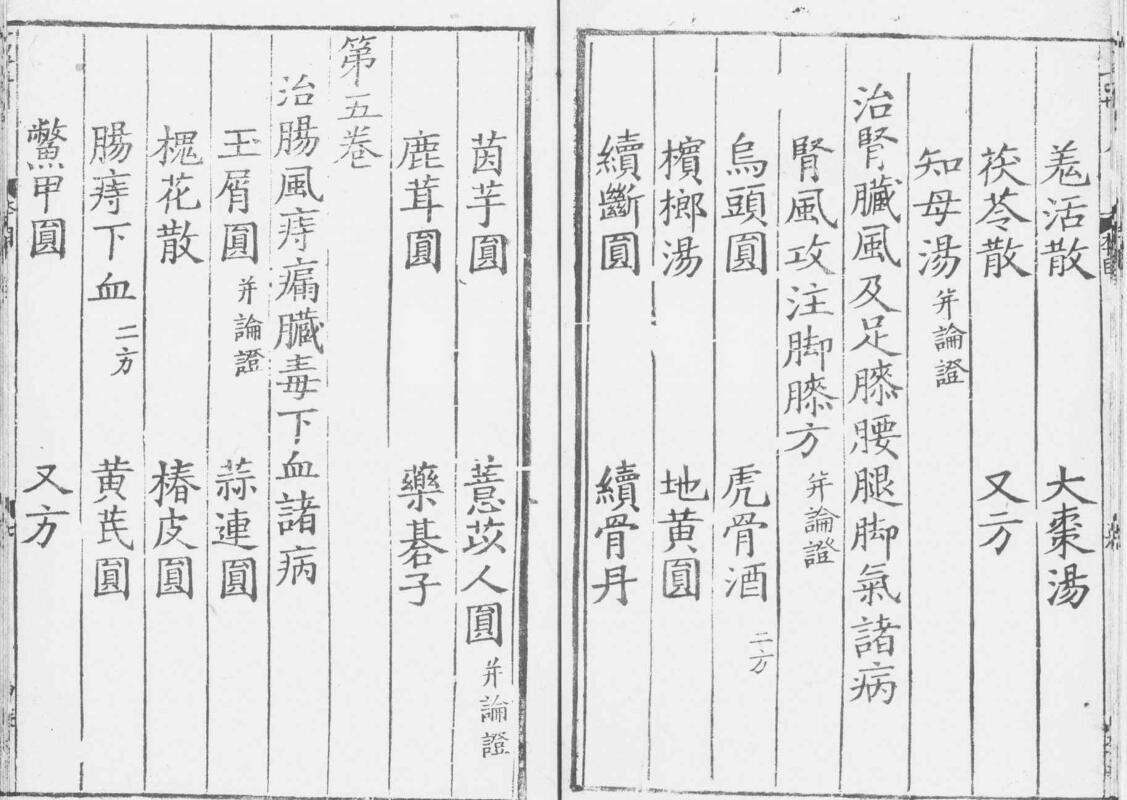 羗活散 大棗湯
茯苓散 又方
知母湯 并論證
治腎臟風及足膝腰腿脚氣諸病
腎風攻注脚膝方 并論證
烏頭圓 虎骨酒 二方
檳榔湯 地黄圓
續斷圓 續骨丹
茵芋圓 薏苡人圓 并論證
鹿茸圓 藥碁子
第五卷
治腸風痔瘺臟毒下血諸病
玉屑圓 并論證 蒜連圓
槐花散 椿皮圓
腸痔下血 二方 黄芪圓
鱉甲圓 又方